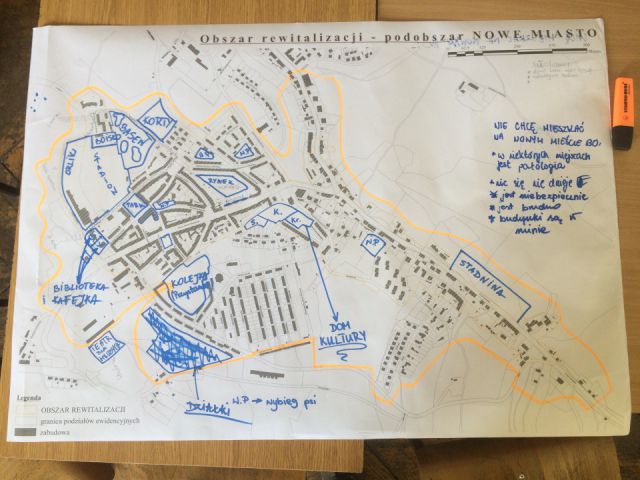 Obszar rewitalizacji - podobszar NOWE MIASTO
NIE CHCĘ MIESZKAĆ
NA NOWYM MIEŚCIE BO:
* w niektórych miejscach
jest patologia
* nic się nie dzieje
* jest niebezpiecznie
* jest brudno
* budynki są w
ruinie
KORTY
BASEN
BOISKO
ORLIK
STADION
RYNEK
N.P.
K.
Kr.
N.P
STADNINA
BIBLIOTEKA
i KAFEJKA
KOLEJKA
TEATR
DOM
KULTURY
DZIAŁKI
N.P → wybieg psi
Legenda
OBSZAR REWITALIZACJI
granica podziałów ewidencyjnych
zabudowa